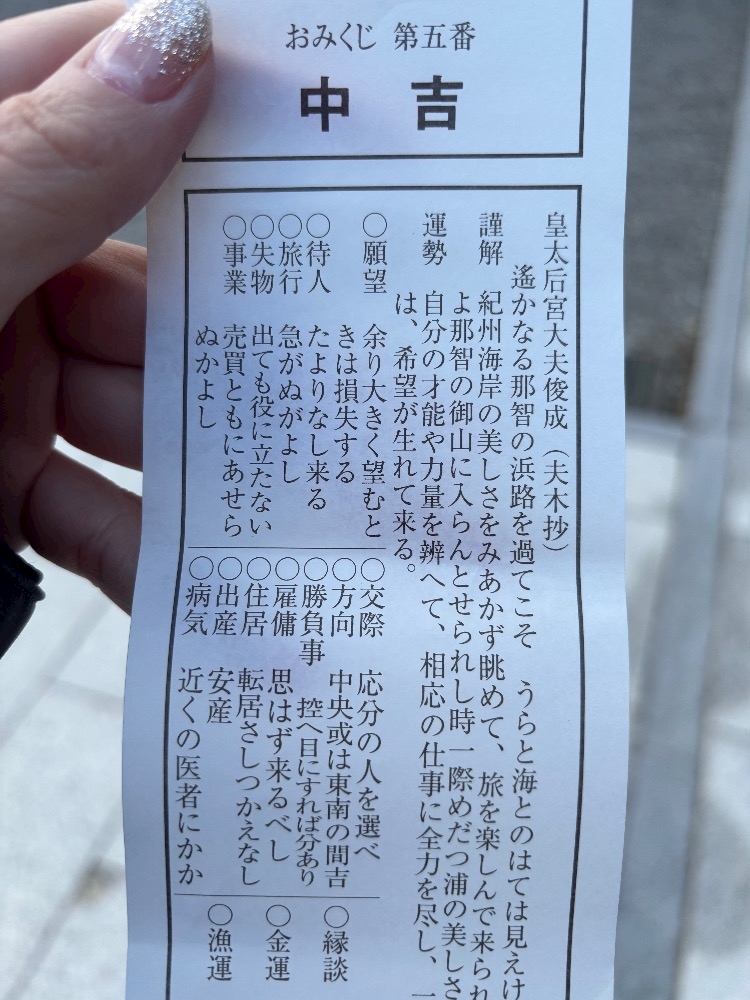 おみくじ 第五番
中吉
皇太后宮大夫俊成(夫木抄)
遙かなる那智の浜路を過てこそ うらと海とのはては見えけ
謹解 紀州海岸の美しさをみあかず眺めて、旅を楽しんで来られ
よ那智の御山に入らんとせられし時一際めだつ浦の美しさ
運勢 自分の才能や力量を辨へて、相応の仕事に全力を尽し、一
は、希望が生れて来る。
○願望 余り大きく望むと
きは損失する
○待人 たよりなし来る
○旅行 急がぬがよし
○失物 出ても役に立たない
○事業 売買ともにあせら
ぬかよし
○交際 応分の人を選べ
○方向 中央或は東南の間吉
○勝負事 控へ目にすれば分あり
○雇傭 思はず来るべし
○住居 転居さしつかえなし
○出産 安産
○病気 近くの医者にかか
○縁談
○金運
○漁運